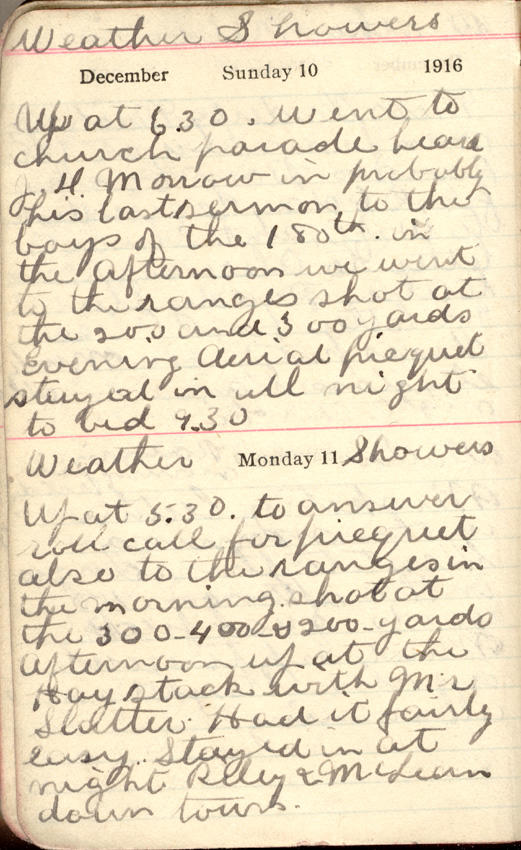 Weather Showers
December Sunday 10 1916
Up at 6.30. Went to
church parade heard
J. H. Morrow in probably
his last sermon to the
boys of the 180th. in
the afternoon we went
to the ranges shot at
the 200 and 300 yards
evening Aerial piequet
stayed in all night
to bed 9.30
Weather Monday 11 Showers
Up at 5.30. to answer
roll call for piequet
also to the ranges in
the morning. shot at
the 300-400-&200-yards
afternoon up at the
Hay stack with Mr
Slatter. Had it fairly
easy. Stayed in at
night Riley & McLean
down town.